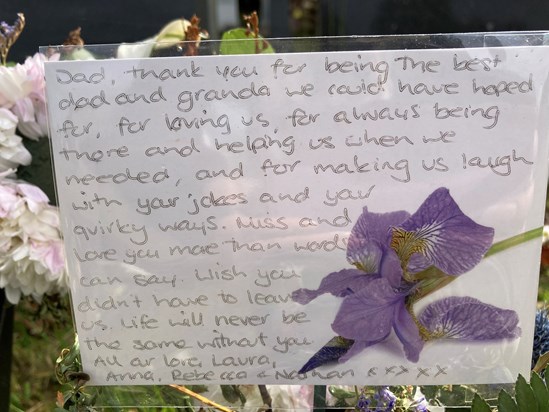 Dad, thank you for being the best
dad and granda we could have hoped
for, for loving us, for always being
there and helping us when we
needed, and for making us laugh
with your jokes and your
quirky ways. Miss and
love you more than words
can say. Wish you
didn't have to leave
us. Life will never be
the same without you
All our love, Laura,
Anna, Rebecca & Nathan xxxxx